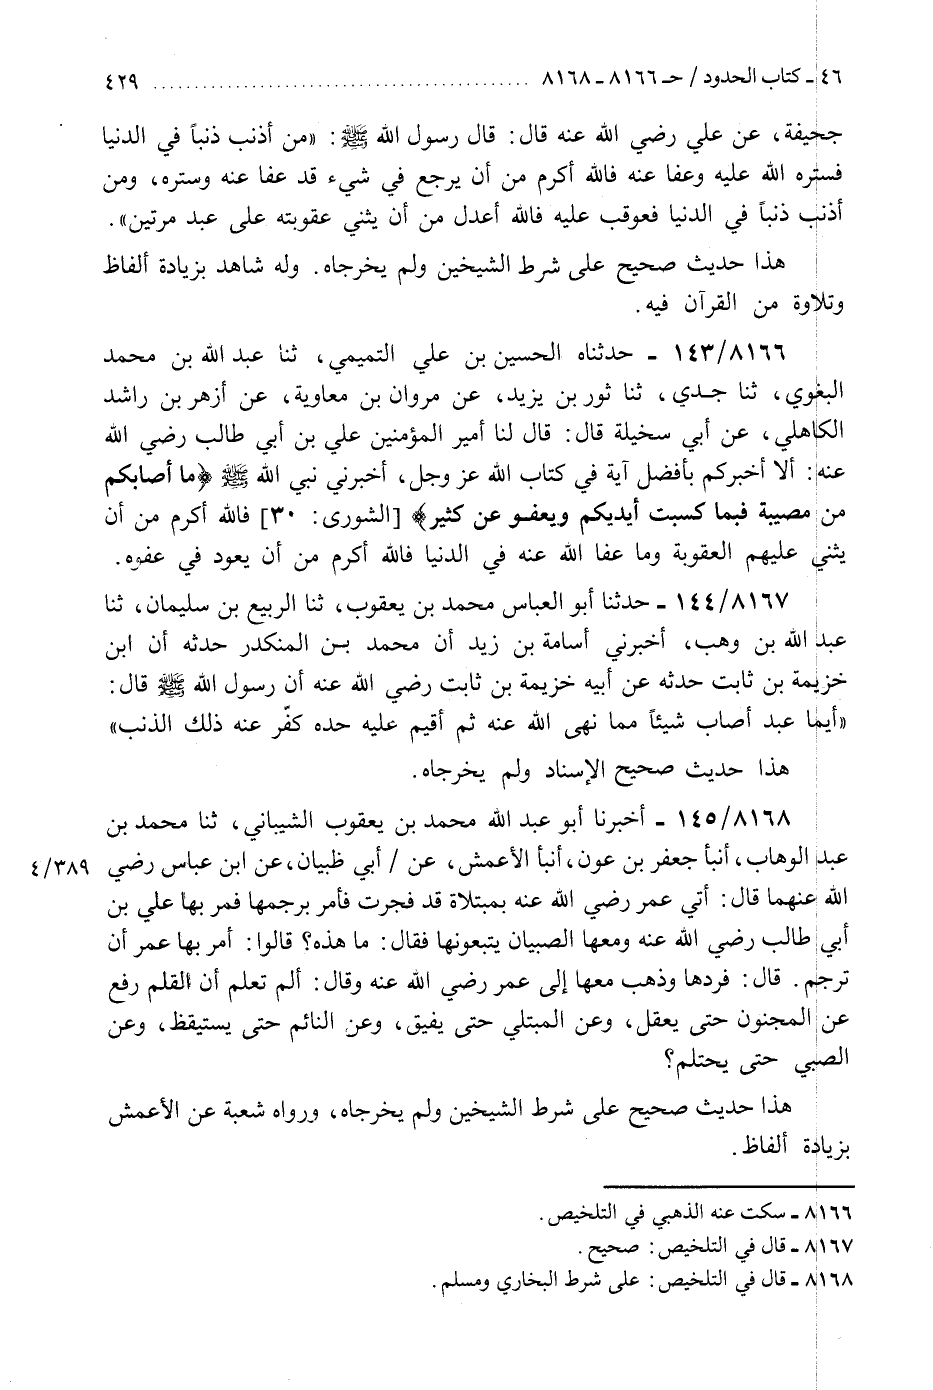 ٤٦ ـ كتاب الحدود / حـ ٨١٦٦ ـ ٨١٦٨ ................................................ ٤٢٩
جحيفة، عن علي رضي الله عنه قال: قال رسول الله ﷺ: «من أذنب ذنباً في الدنيا
فستره الله عليه وعفا عنه فالله أكرم من أن يرجع في شيء قد عفا عنه وستره، ومن
أذنب ذنباً في الدنيا فعوقب عليه فالله أعدل من أن يثني عقوبته على عبد مرتين».
هذا حديث صحيح على شرط الشيخين ولم يخرجاه. وله شاهد بزيادة ألفاظ
وتلاوة من القرآن فيه.
١٤٣/٨١٦٦ ـ حدثناه الحسين بن علي التميمي، ثنا عبد الله بن محمد
البغوي، ثنا جـدي، ثنا ثور بن يزيد، عن مروان بن معاوية، عن أزهر بن راشد
الكاهلي، عن أبي سخيلة قال: قال لنا أمير المؤمنين علي بن أبي طالب رضي الله
عنه: ألا أخبركم بأفضل آية في كتاب الله عز وجل، أخبرني نبي الله ﷺ ﴿ما أصابكم
من مصيبة فبما كسبت أيديكم ويعفـو عن كثير﴾ [الشورى: ٣٠] فالله أكرم من أن
يثني عليهم العقوبة وما عفا الله عنه في الدنيا فالله أكرم من أن يعود في عفوه.
١٤٤/٨١٦٧ ـ حدثنا أبو العباس محمد بن يعقوب، ثنا الربيع بن سليمان، ثنا
عبد الله بن وهب، أخبرني أسامة بن زيد أن محمد بـن المنكدر حدثه أن ابن
خزيمة بن ثابت حدثه عن أبيه خزيمة بن ثابت رضي الله عنه أن رسول الله ﷺ قال:
«أيما عبد أصاب شيئاً مما نهى الله عنه ثم أقيم عليه حده كفّر عنه ذلك الذنب»
هذا حديث صحيح الإسناد ولم يخرجاه.
١٤٥/٨١٦٨ ـ أخبرنا أبو عبد الله محمد بن يعقوب الشيباني، ثنا محمد بن
عبد الوهاب، أنبأ جعفر بن عون، أنبأ الأعمش، عن / أبي ظبيان، عن ابن عباس رضي ٤/٣٨٩
الله عنهما قال: أتي عمر رضي الله عنه بمبتلاة قد فجرت فأمر برجمها فمر بها علي بن
أبي طالب رضي الله عنه ومعها الصبيان يتبعونها فقال: ما هذه؟ قالوا: أمر بها عمر أن
ترجم. قال: فردها وذهب معها إلى عمر رضي الله عنه وقال: ألم تعلم أن القلم رفع
عن المجنون حتى يعقل، وعن المبتلي حتى يفيق، وعن النائم حتى يستيقظ، وعن
الصبي حتى يحتلم؟
هذا حديث صحيح على شرط الشيخين ولم يخرجاه، ورواه شعبة عن الأعمش
بزيادة ألفاظ.
٨١٦٦ ـ سكت عنه الذهبي في التلخيص.
٨١٦٧ ـ قال في التلخيص: صحيح.
٨١٦٨ ـ قال في التلخيص: على شرط البخاري ومسلم.